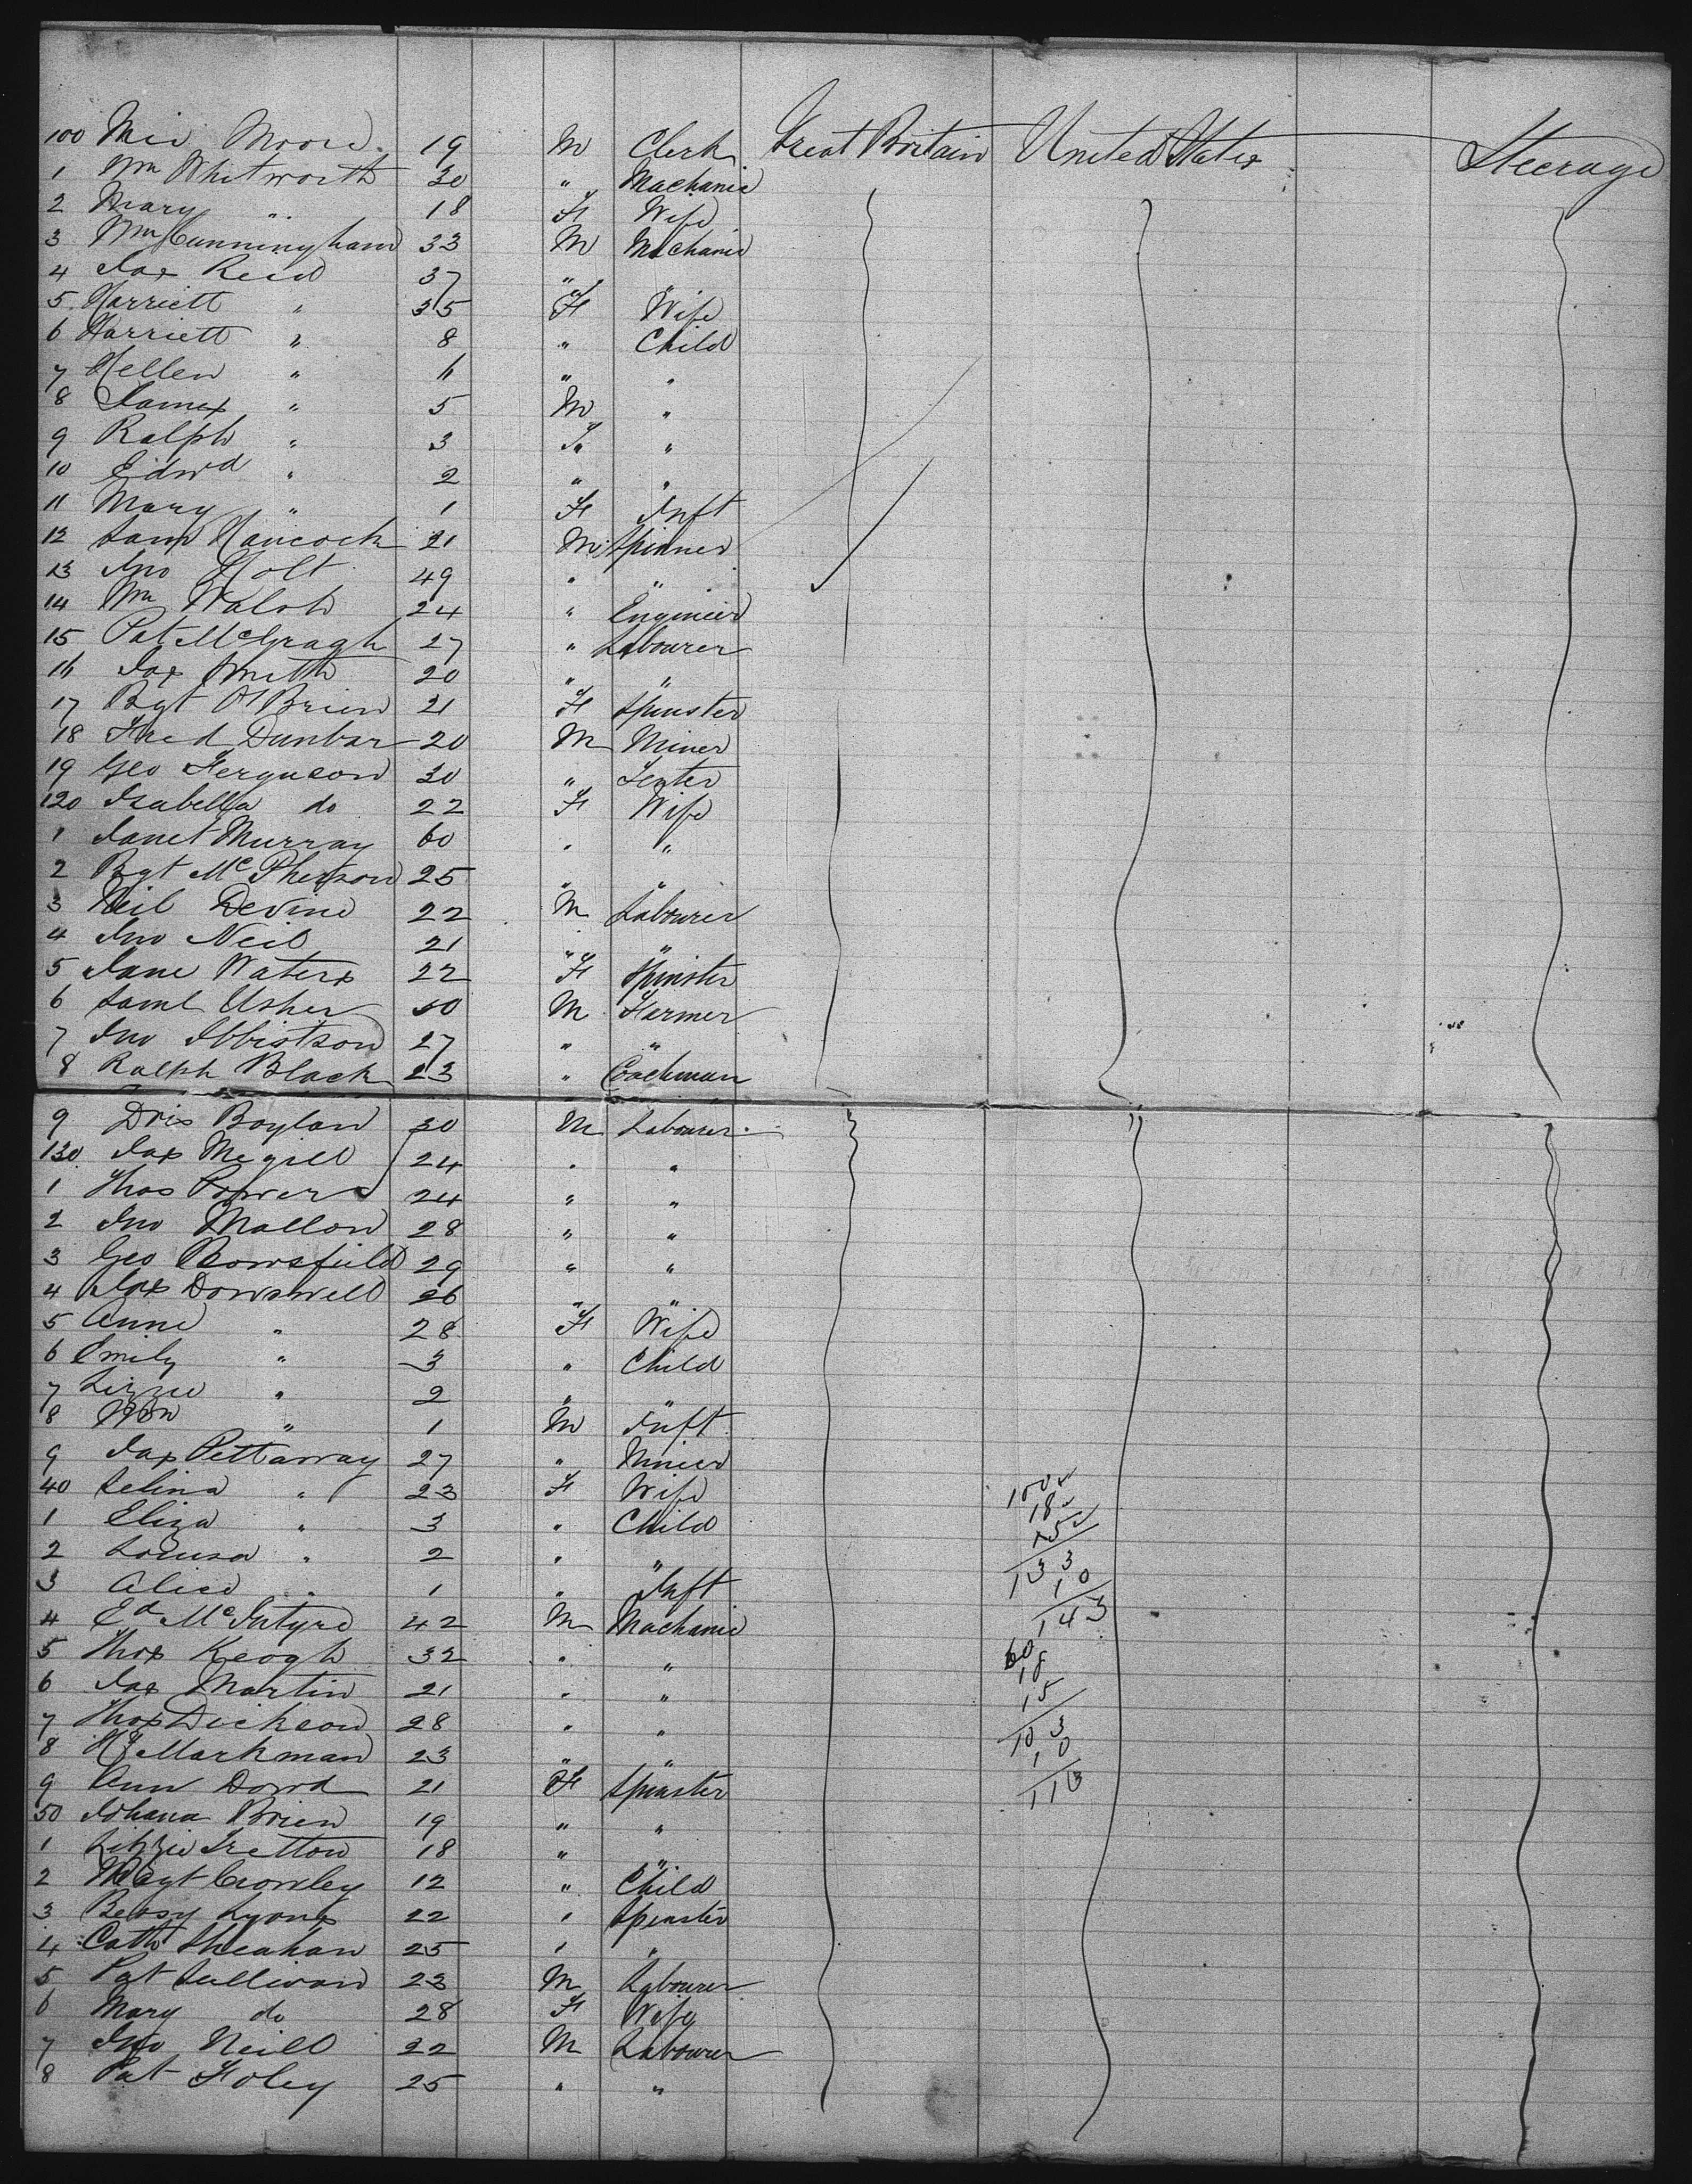 100 Mic Moore 19 M Clerk Great Britain United States Steerage
1 Wm Whitworth 30 " Machanic
2 Mary " 18 F Wife
3 Wm Cunningham 33 M Machanic
4 Jas Reid 37 " "
5 Harriett " 35 F Wife
6 Harriett " 8 " Child
7 Hellen " 6 " "
8 James " 5 M "
9 Ralph " 3 " "
10 Edwd " 2 " "
11 Mary " 1 F Inft
12 Saml Hancock 21 M Spinner
13 Jno Holt 49 " "
14 Wm Walsh 24 " Engineer
15 Pat McGragh 27 " Labourer
16 Jas Smith 20 " "
17 Bgt O'Brien 21 F Spinster
18 Fred Dunbar 20 M Miner
19 Geo Ferguson 30 "
120 Isabella do 22 F Wife
1 Janet Murray 60 " "
2 Bgt McPherson 25 " "
3 Neil Devine 22 M Labourer
4 Jno Neil 21 " "
5 Jane Waters 22 F Spinster
6 Saml Usher 50 M Farmer
7 Jno Ibbistson 27 " "
8 Ralph Black 23 " Coachman
9 Boylan 30 M Labourer
130 Jas Megill 24 " "
1 Thos Powers 24 " "
2 Jno Mallon 28 " "
3 Geo Bowsfield 29 " "
4 Jas Dowswell 26 " "
5 Anne " 28 F Wife
6 Emily " 3 " Child
7 Lizzie " 2 " "
8 Wm " 1 M Inft
9 Jas Pettaway 27 " Miner
40 Selina " 23 F Wife
1 Eliza " 3 " Child
2 Louisa " 2 " "
3 Alice " 1 " Inft
4 Ed McIntyre 42 M Machanic
5 Thos Keogh 32 " "
6 Jas Martin 21 " "
7 Thos Dickson 28 " "
8 Hy Markman 23 " "
9 Ann Dowd 21 F Spinster
50 Johana Brien 19 " "
1 Lizzie Tretton 18 " "
2 Margt Crowley 12 " Child
3 Betsy Lyons 22 " Spinster
4 Cath Sheahan 25 " "
5 Pat Sullivan 23 M Labourer
6 Mary do 28 F Wife
7 Jno Neill 22 M Labourer
8 Pat Foley 25 " "
100
18
15
133
10
143
60
18
15
103
10
113